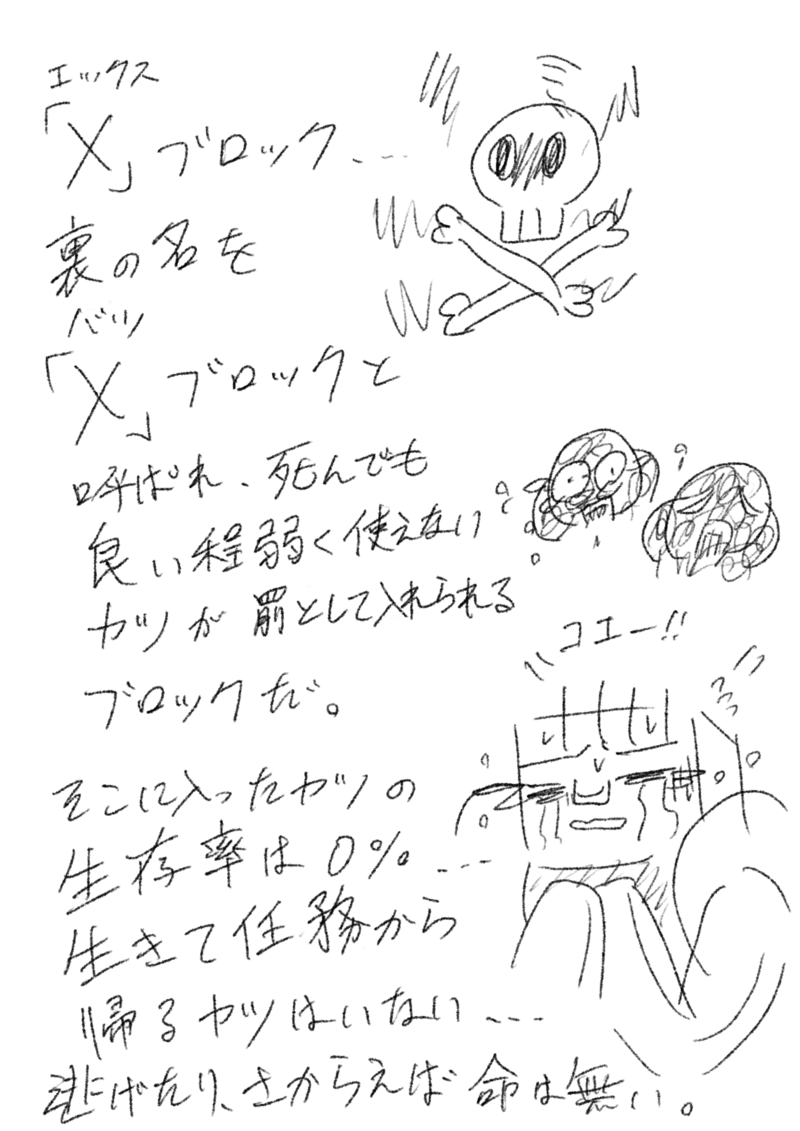 エックス
「X」ブロック...
裏の名を
バツ
「X」ブロックと
呼ばれ、死んでも
良い程弱く使えない
ヤツが罰として入れられる
ブロックだ。
コエー!!
そこに入ったヤツの
生存率は0%...
生きて任務から
帰るヤツはいない...
逃げたり、さからえば命は無い。